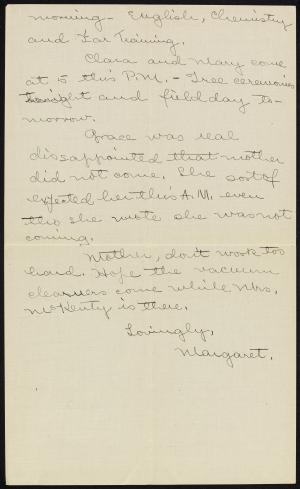 morning - English, Chemistry
and Ear Training.
Clara and Mary come
at 5 this P.M. - Tree ceremonies
tonight and field day to-
morrow.
Grace was real
dissappointed that mother
did not come. She sort of
expected her this A.M. even
tho she wrote she was not
coming.
Mother, don't work too
hard. Hope the vacuum
cleaners come while Mrs.
McKenty is there.
Lovingly,
Margaret.